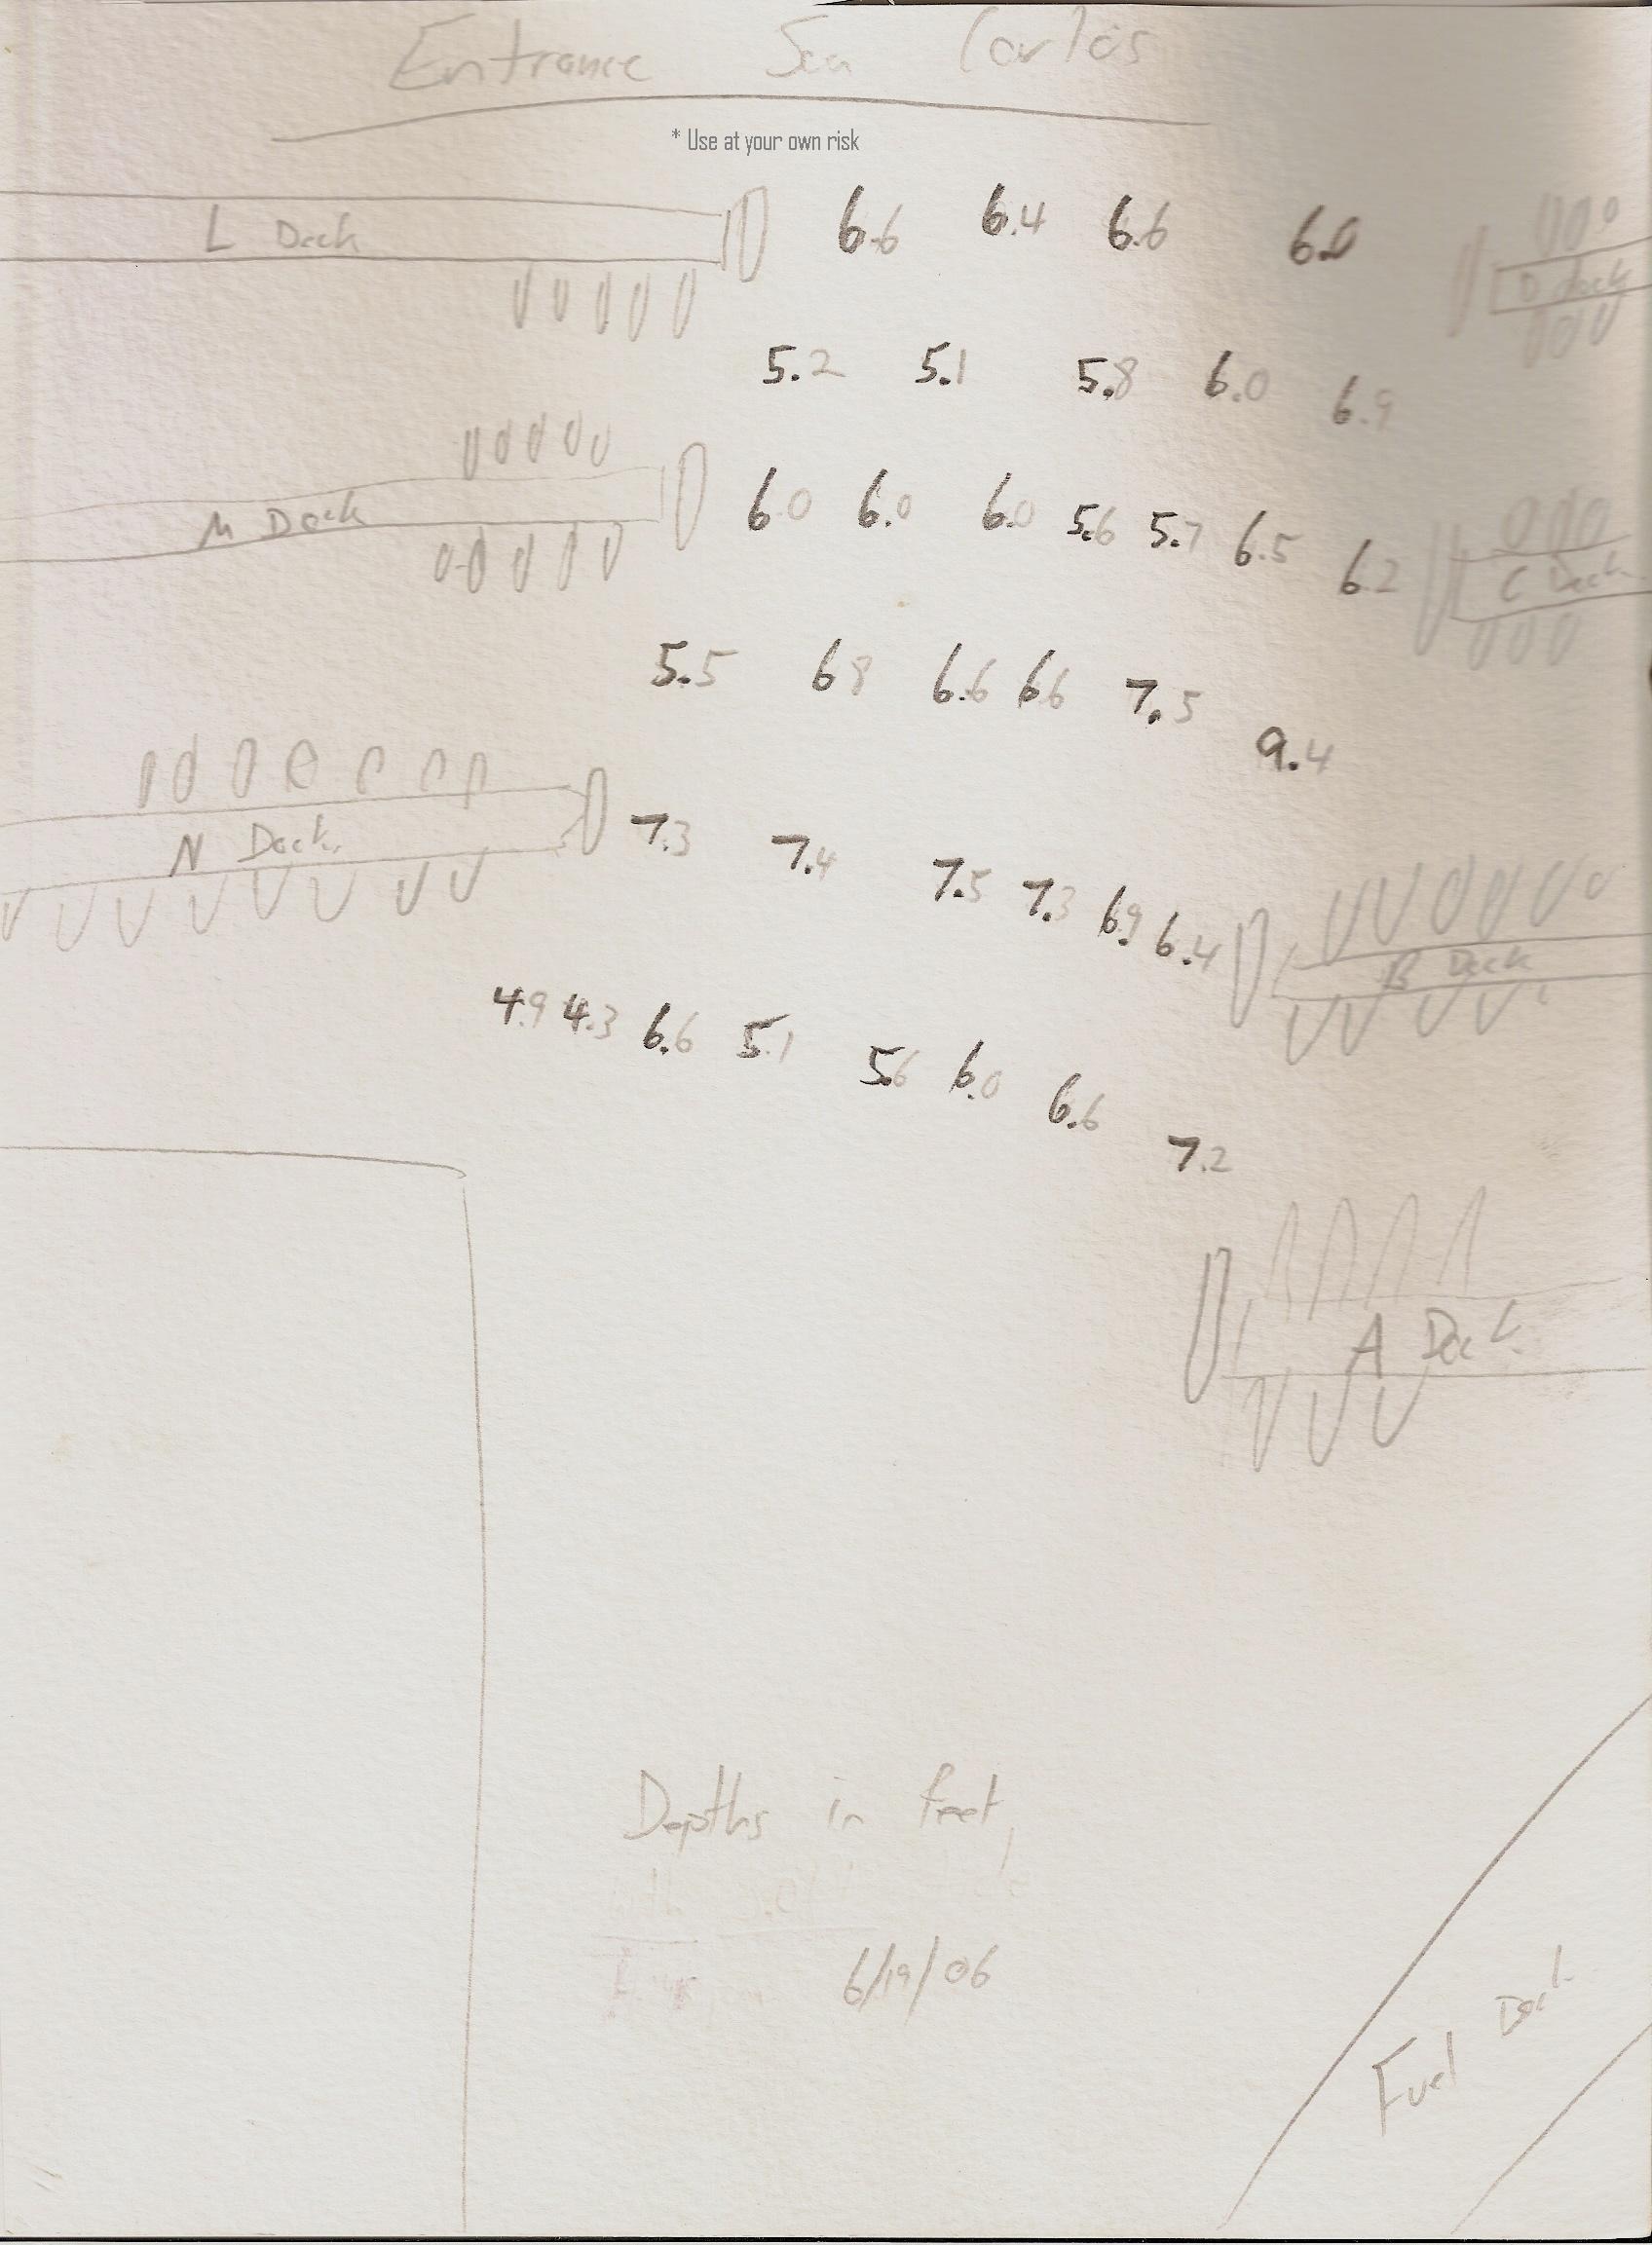 Entrance San Carlos
* Use at your own risk
L Dock 6.6 6.4 6.6 6.0 D dock
5.2 5.1 5.8 6.0 6.9
M Dock 6.0 6.0 6.0 5.6 5.7 6.5 6.2 C Dock
5.5 6.8 6.6 6.6 7.5 9.4
N Dock 7.3 7.4 7.5 7.3 6.9 6.4 B Dock
4.9 4.3 6.6 5.1 5.6 6.0 6.6 7.2
A Dock
Depths in feet,
6/19/06
Fuel Dock